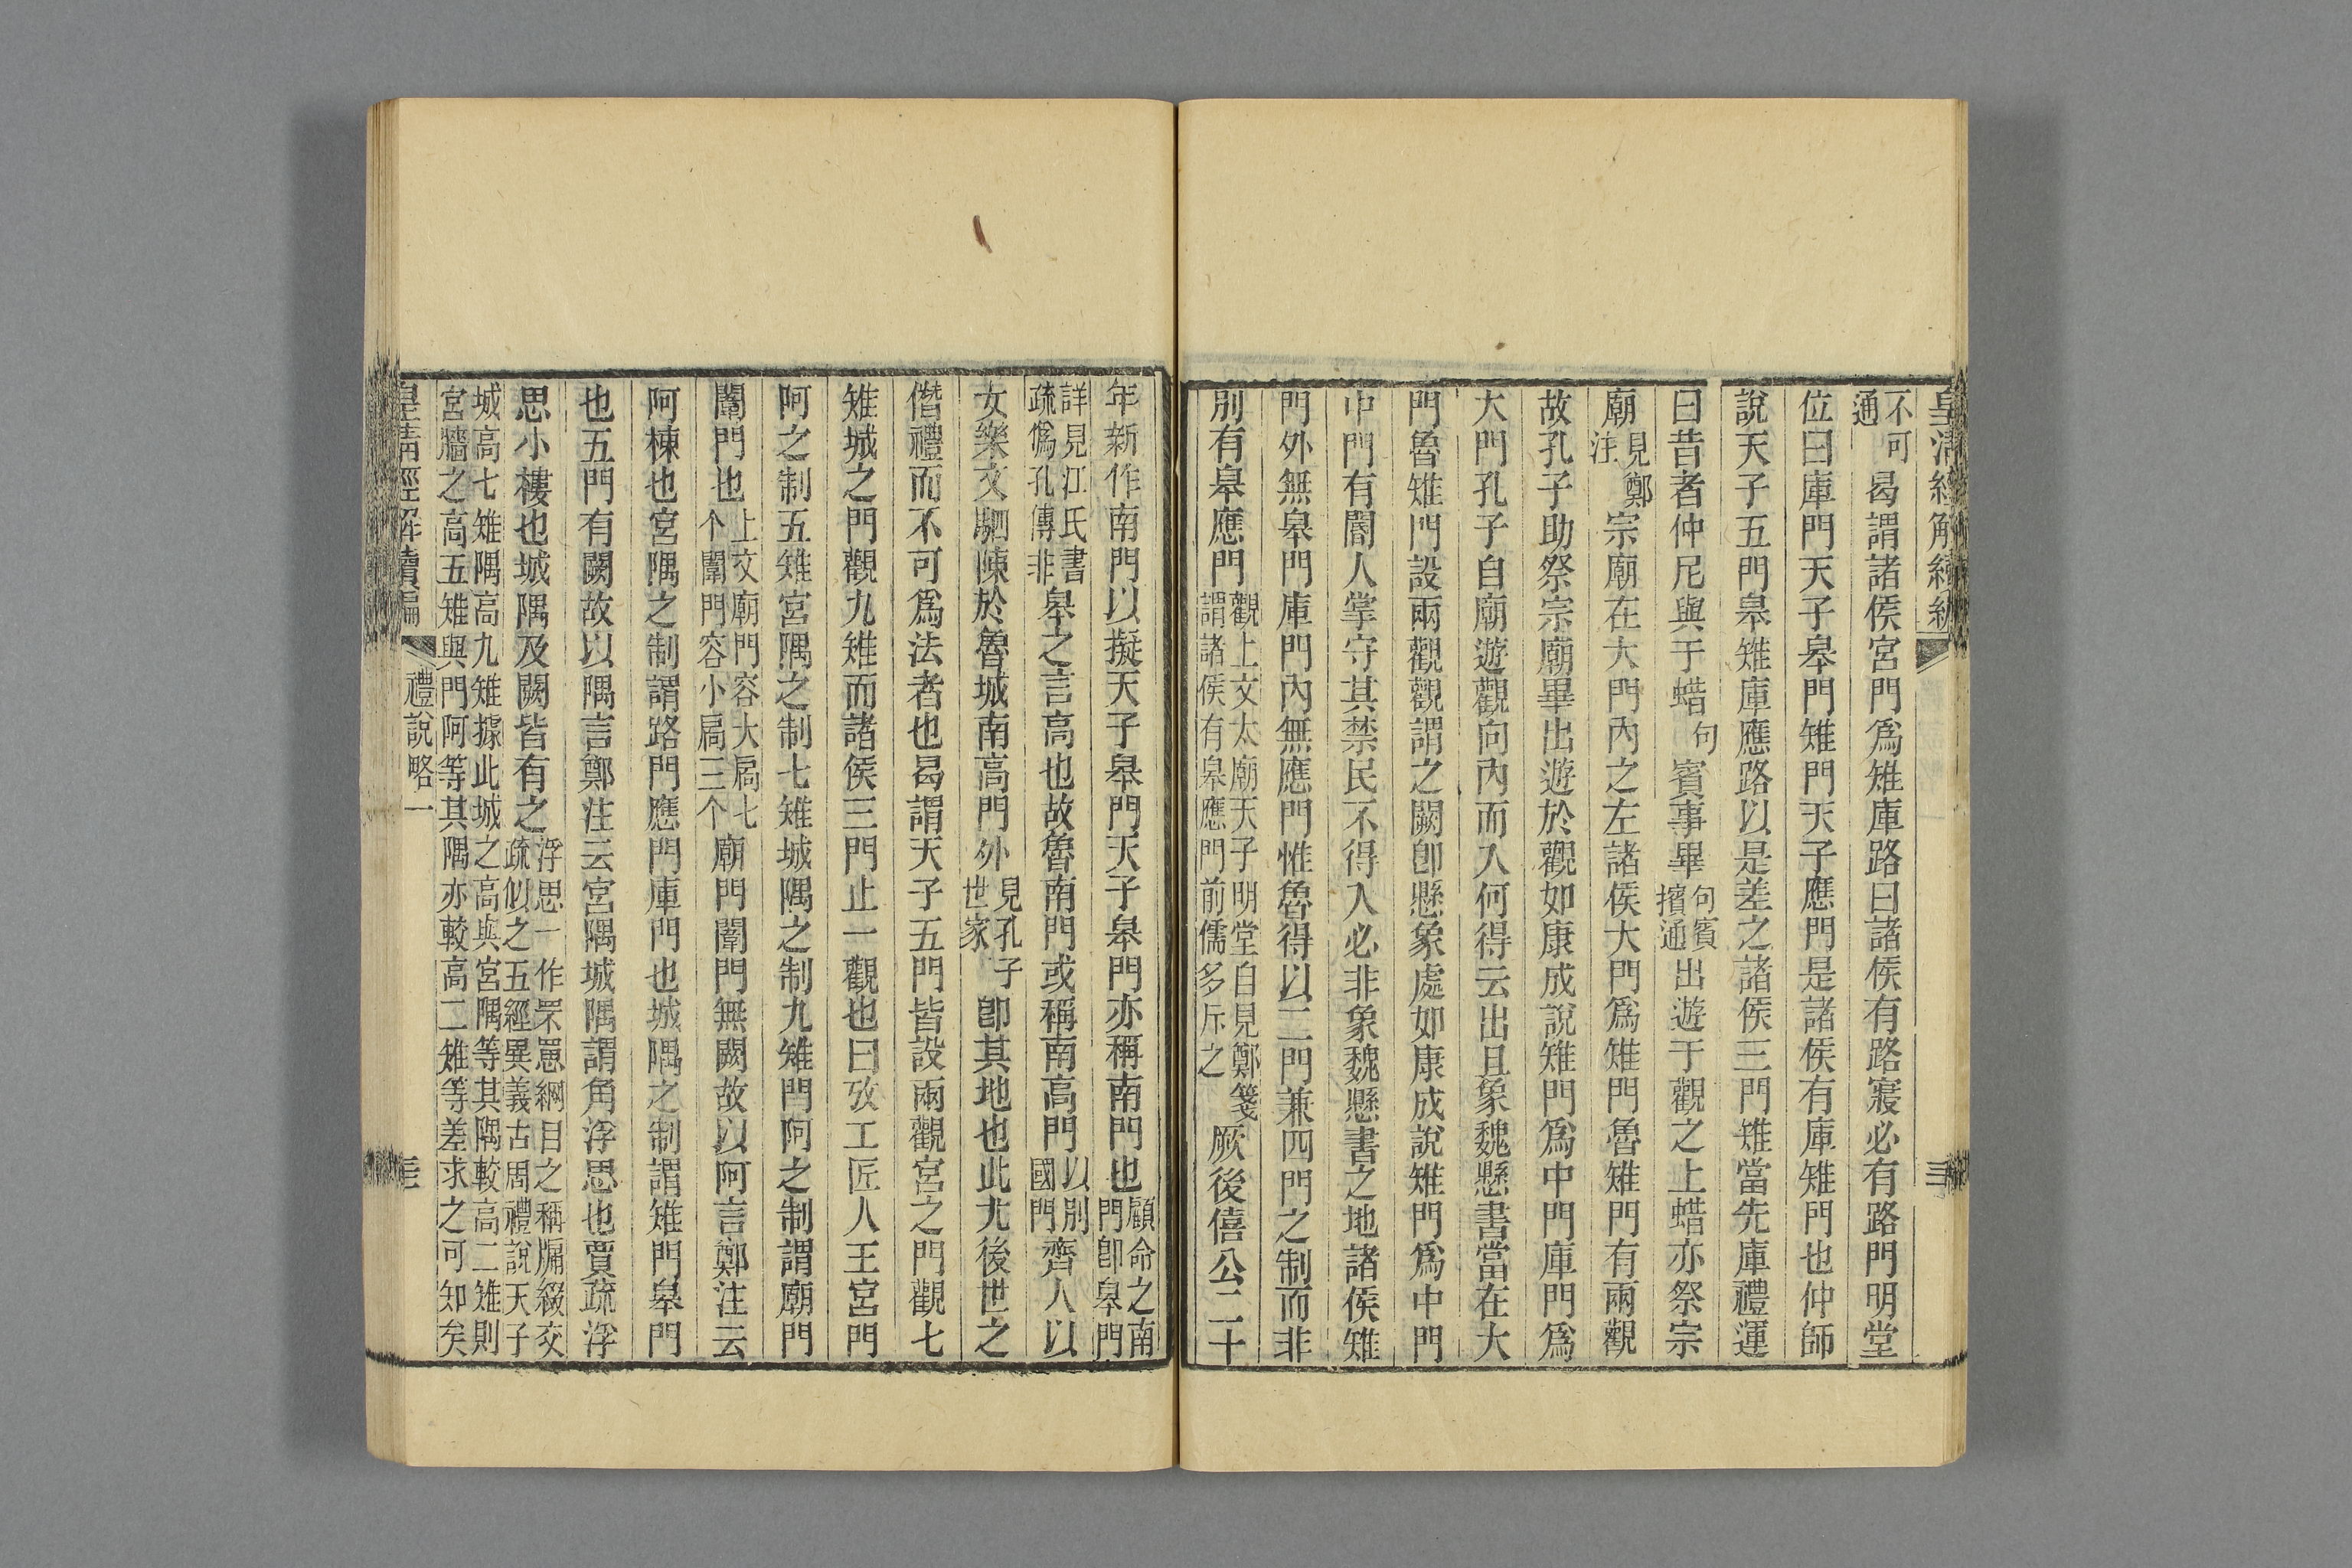 皇清經解續編
不可
通
曷謂諸侯宮門爲雉庫路曰諸侯有路寢必有路門明堂
位曰庫門天子皋門雉門天子應門是諸侯有庫雉門也仲師
說天子五門皋雉庫應路以是差之諸侯三門雉當先庫禮運
曰昔者仲尼與于蜡句賓事畢句賓擯通出遊于觀之上蜡亦祭宗
廟見鄭注宗廟在大門內之左諸侯大門爲雉門魯雉門有兩觀
故孔子助祭宗廟畢出遊於觀如康成說雉門爲中門庫門爲
大門孔子自廟遊觀向內而入何得云出且象魏懸書當在大
門魯雉門設兩觀觀謂之闕卽懸象處如康成說雉門爲中門
中門有閽人掌守其禁民不得入必非象魏懸書之地諸侯雉
門外無皋門庫門內無應門惟魯得以二門兼四門之制而非
別有皋應門觀上文太廟天子明堂自見鄭箋謂諸侯有皋應門前儒多斥之厥後僖公二十
年新作南門以擬天子皋門天子皋門亦稱南門也顧命之南門卽皋門
詳見江氏書疏僞孔傳非皋之言高也故魯南門或稱南高門以別國門齊人以
女樂文駟陳於魯城南高門外見孔子世家卽其地也此尤後世之
僭禮而不可爲法者也曷謂天子五門皆設兩觀宮之門觀七
雉城之門觀九雉而諸侯三門止一觀也曰攷工匠人王宮門
阿之制五雉宮隅之制七雉城隅之制九雉門阿之制謂廟門
闈門也上文廟門容大扃七个闈門容小扃三个廟門闈門無闕故以阿言鄭注云
阿棟也宮隅之制謂路門應門庫門也城隅之制謂雉門皋門
也五門有闕故以隅言鄭注云宮隅城隅謂角浮思也賈疏浮
思小樓也城隅及闕皆有之浮思一作罘罳網目之稱牖綴交疏似之五經異義古周禮說天子
城高七雉隅高九雉據此城之高與宮隅等其隅較高二雉則
宮牆之高五雉與門阿等其隅亦較高二雉等差求之可知矣
皇清經解續編
禮說略一